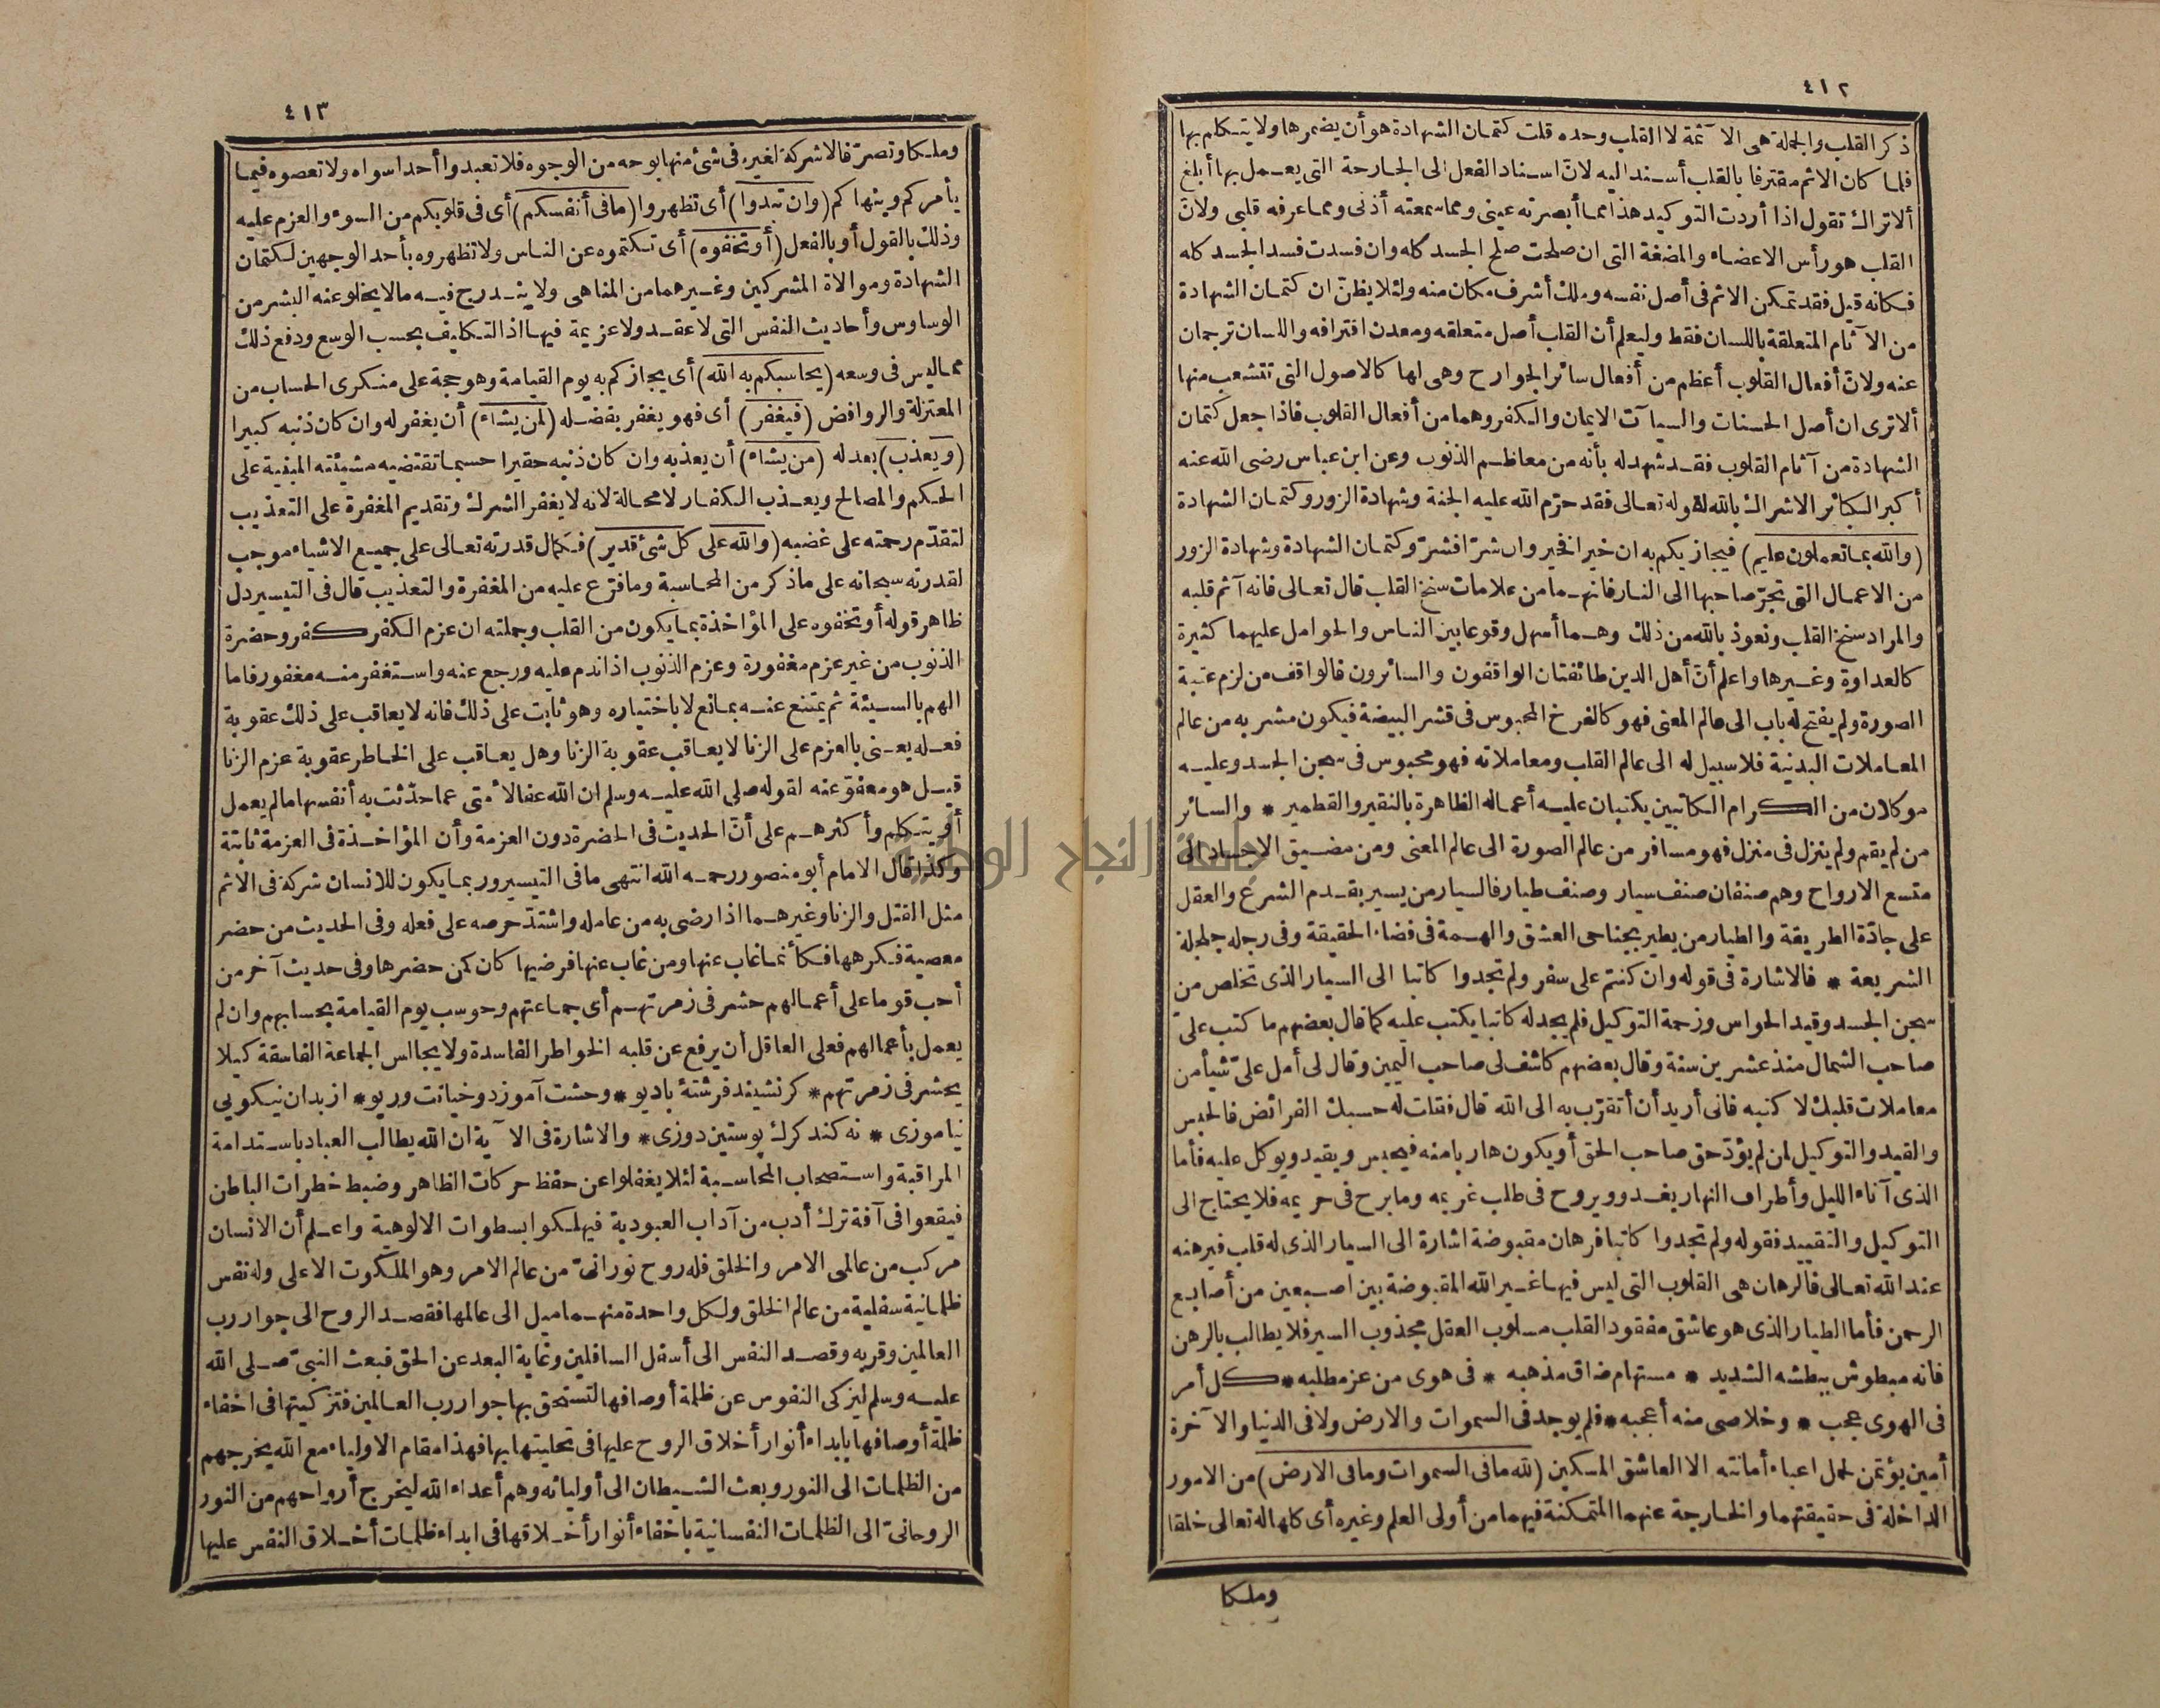 ٤١٢
ذكر القلب والجملة هى الآثمة لا القلب وحده قلت كتمان الشهادة هو أن يضمرها ولا يتكلم بها
فلما كان الاثم مقترفا بالقلب أسند اليه لانّ اسناد الفعل الى الجارحة التى يعمل بها أبلغ
ألا تراك تقول اذا أردت التوكيد هذا مما أبصرته عينى ومما سمعته أذنى ومما عرفه قلبى ولانّ
القلب هو رأس الاعضاء والمضغة التى ان صلحت صلح الجسد كله وان فسدت فسد الجسد كله
فكانه قيل فقد تمكن الاثم فى أصل نفسه وملك أشرف مكان منه ولئلا يظنّ ان كتمان الشهادة
من الآثام المتعلقة باللسان فقط وليعلم أن القلب أصل متعلقه ومعدن اقترافه واللسان ترجمان
عنه ولانّ أفعال القلوب أعظم من أفعال سائر الجوارح وهى لها كالاصول التى تتشعب منها
ألا ترى ان أصل الحسنات والسيآت الايمان والكفر وهما من أفعال القلوب فاذا جعل كتمان
الشهادة من آثام القلوب فقد شهد له بأنه من معاظم الذنوب وعن ابن عباس رضى الله عنه
أكبر الكبائر الاشراك بالله لقوله تعالى فقد حرّم الله عليه الجنة وشهادة الزور وكتمان الشهادة
(والله بما تعملون عليم) فيجازيكم به ان خيرا فخير وان شرّا فشرّ وكتمان الشهادة وشهادة الزور
من الاعمال التى تجرّ صاحبها الى النار فانهما من علامات سنخ القلب قال تعالى فانه آثم قلبه
والمراد سنخ القلب ونعوذ بالله من ذلك وهما أسهل وقوعا بين الناس والحوامل عليهما كثيرة
كالعداوة وغيرها واعلم أنّ أهل الدين طائفتان الواقفون والسائرون فالواقف من لزم عتبة
الصورة ولم يفتح له باب الى عالم المعنى فهو كالفرخ المحبوس فى قشر البيضة فيكون مشربه من عالم
المعاملات البدنية فلا سبيل له الى عالم القلب ومعاملاته فهو محبوس فى سجن الجسد وعليه
موكلان من الكرام الكاتبين يكتبان عليه أعماله الظاهرة بالنقير والقطمير * والسائر
من لم يقم ولم ينزل فى منزل فهو مسافر من عالم الصورة الى عالم المعنى ومن مضيق الاجساد الى
متسع الارواح وهم صنفان صنف سيار وصنف طيار فالسيار من يسير بقدم الشرع والعقل
على جادّة الطريقة والطيار من يطير بجناحى العشق والهمة فى فضاء الحقيقة وفى رجله جلجلة
الشريعة * فالاشارة فى قوله وان كنتم على سفر ولم تجدوا كاتبا الى السيار الذى تخلص من
سجن الجسد وقيد الحواس وزحمة التوكيل فلم يجد له كاتبا يكتب عليه كما قال بعضهم ما كتب علىّ
صاحب الشمال منذ عشرين سنة وقال بعضهم كاشف لى صاحب اليمين وقال لى أمل علىّ شيأ من
معاملات قلبك لاكتبه فانى أريد أن أتقرّب به الى الله قال فقلت له حسبك الفرائض فالحبس
والقيد والتوكيل لمن لم يؤدّ حق صاحب الحق أو يكون هاربا منه فيحبس ويقيد ويوكل عليه فأما
الذى آناء الليل وأطراف النهار يغدو ويروح فى طلب غريمه وما برح فى حريمه فلا يحتاج الى
التوكيل والتقييد فقوله ولم تجدوا كاتبا فرهان مقبوضة اشارة الى السيار الذى له قلب فيرهنه
عند الله تعالى فالرهان هى القلوب التى ليس فيها غير الله المقبوضة بين اصبعين من أصابع
الرحمن فأما الطيار الذى هو عاشق مفقود القلب مسلوب العقل مجذوب السير فلا يطالب بالرهن
فانه مبطوش ببطشه الشديد * مستهام ضاق مذهبه * فى هوى من عز مطلبه * كل أمر
فى الهوى عجب * وخلاصى منه أعجبه * فلم يوجد فى السموات والارض ولا فى الدنيا والآخرة
أمين يؤتمن لحمل اعباء أمانته الا العاشق المسكين (لله ما فى السموات وما فى الارض) من الامور
الداخلة فى حقيقتهما والخارجة عنهما المتمكنة فيهما من أولى العلم وغيره أى كلها له تعالى خلقا
وملكا
٤١٣
وملكا وتصرّفا لا شركة لغيره فى شئ منها بوجه من الوجوه فلا تعبدوا أحدا سواه ولا تعصوه فيما
يأمركم وينهاكم (وان تبدوا) أى تظهروا (ما فى أنفسكم) أى فى قلوبكم من السوء والعزم عليه
وذلك بالقول أو بالفعل (أو تخفوه) أى تكتموه عن الناس ولا تظهروه بأحد الوجهين لكتمان
الشهادة وموالاة المشركين وغيرهما من المناهى ولا يندرج فيه ما لا يخلو عنه البشر من
الوساوس وأحاديث النفس التى لا عقد ولا عزيمة فيها اذ التكليف بحسب الوسع ودفع ذلك
مما ليس فى وسعه (يحاسبكم به الله) أى يجازكم به يوم القيامة وهو حجة على منكرى الحساب من
المعتزلة والروافض (فيغفر) أى فهو يغفر بفضله (لمن يشاء) أن يغفر له وان كان ذنبه كبيرا
(ويعذب) بعدله (من يشاء) أن يعذبه وان كان ذنبه حقيرا حسبما تقتضيه مشيئته المبنية على
الحكم والمصالح ويعذب الكفار لا محالة لانه لا يغفر الشرك وتقديم المغفرة على التعذيب
لتقدّم رحمته على غضبه (والله على كل شئ قدير) فكمال قدرته تعالى على جميع الاشياء موجب
لقدرته سبحانه على ما ذكر من المحاسبة وما فرّع عليه من المغفرة والتعذيب قال فى التيسير دل
ظاهر قوله أو تخفوه على المؤاخذة بما يكون من القلب وجملته ان عزم الكفر كفر وحضرة
الذنوب من غير عزم مغفورة وعزم الذنوب اذا ندم عليه ورجع عنه واستغفر منه مغفور فاما
الهم بالسيئة ثم يمتنع عنه بمانع لا باختياره وهو ثابت على ذلك فانه لا يعاقب على ذلك عقوبة
فعله يعنى بالعزم على الزنا لا يعاقب عقوبة الزنا وهل يعاقب على الخاطر عقوبة عزم الزنا
قيل هو معفوّ عنه لقوله صلى الله عليه وسلم ان الله عفا لامّتى عما حدّثت به أنفسها ما لم يعمل
أو يتكلم وأكثرهم على أنّ الحديث فى الحضرة دون العزمة وأن المؤاخذة فى العزمة ثابتة
وكذا قال الامام أبو منصور رحمه الله انتهى ما فى التيسير وربما يكون للانسان شركة فى الاثم
مثل القتل والزنا وغيرهما اذا رضى به من عامله واشتدّ حرصه على فعله وفى الحديث من حضر
معصية فكرهها فكأنما غاب عنها ومن غاب عنها فرضيها كان كمن حضرها وفى حديث آخر من
أحب قوما على أعمالهم حشر فى زمرتهم أى جماعتهم وحوسب يوم القيامة بحسابهم وان لم
يعمل بأعمالهم فعلى العاقل أن يرفع عن قلبه الخواطر الفاسدة ولا يجالس الجماعة الفاسقة كيلا
يحشر فى زمرتهم * كر نشيند فرشتۀ باديو * وحشت آموزد وخيانت وريو * از بدان نيكويى
نياموزى * نه كند كرك پوستين دوزى * والاشارة فى الآية ان الله يطالب العباد باستدامة
المراقبة واستصحاب المحاسبة لئلا يغفلوا عن حفظ حركات الظاهر وضبط خطرات الباطن
فيقعوا فى آفة ترك أدب من آداب العبودية فيهلكوا بسطوات الالوهية واعلم أن الانسان
مركب من عالمى الامر والخلق فله روح نورانىّ من عالم الامر وهو الملكوت الاعلى وله نفس
ظلمانية سفلية من عالم الخلق ولكل واحدة منهما ميل الى عالمها فقصد الروح الى جوار رب
العالمين وقربه وقصد النفس الى أسفل السافلين وغاية البعد عن الحق فبعث النبىّ صلى الله
عليه وسلم ليزكى النفوس عن ظلمة أوصافها لتستحق بها جوار رب العالمين فتزكيتها فى اخفاء
ظلمة أوصافها بابداء أنوار أخلاق الروح عليها فى تحليتها بها فهذا مقام الاولياء مع الله يخرجهم
من الظلمات الى النور وبعث الشيطان الى أوليائه وهم أعداء الله ليخرج أرواحهم من النور
الروحانىّ الى الظلمات النفسانية باخفاء أنوار أخلاقها فى ابداء ظلمات أخلاق النفس عليها
جامعة النجاح الوطنية